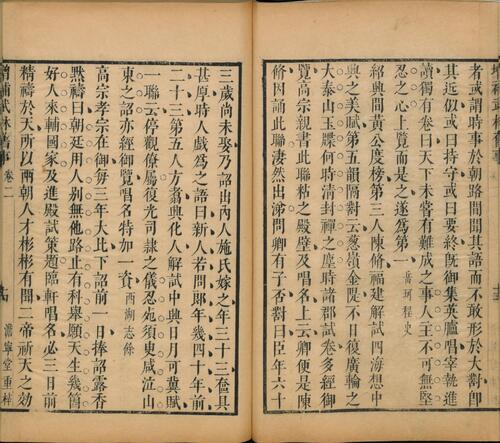 者或謂時事於朝路間聞其語而不敢形於大對卽
其近似或曰持守或曰要終旣御集英臚唱宰執進
讀獨有卷曰天下未嘗有難成之事人主不可無堅
忍之心上覽而是之遂爲第一 岳珂桯史
紹興間黃公度榜第三人陳脩福建解試四海想中
興之美賦第五韻隔對云葱嶺金隄不日復廣輪之
土泰山玉牒何時淸封禪之塵時諸郡試卷多經御
覽高宗親書此聯粘之殿壁及唱名上云卿便是陳
脩因誦此聯淒然出涕問卿有子否對曰臣年六十
三歲尚未娶乃詔出內人施氏嫁之年三十三奩具
甚厚時人戲爲之語曰新人若問郎年幾四十年前
二十三第五人方翥興化人解試中興日月可冀賦
一聯云停觀僚屬復光司隸之儀忍死須臾咸泣山
東之詔亦經御覽唱名特加一資 西湖志餘
高宗孝宗在御每三年大比下詔前一日捧詔露香
默禱曰朝廷用人別無他路止有科舉願天生幾箇
好人來輔國家及進殿試策題臨軒唱名必三日前
精禱於天所以兩朝人才彬彬有聞二帝祈天之効
增補武林舊事 卷二
澹寧堂重梓